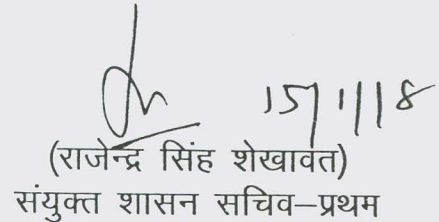 15/1/18
(राजेन्द्र सिंह शेखावत)
संयुक्त शासन सचिव–प्रथम